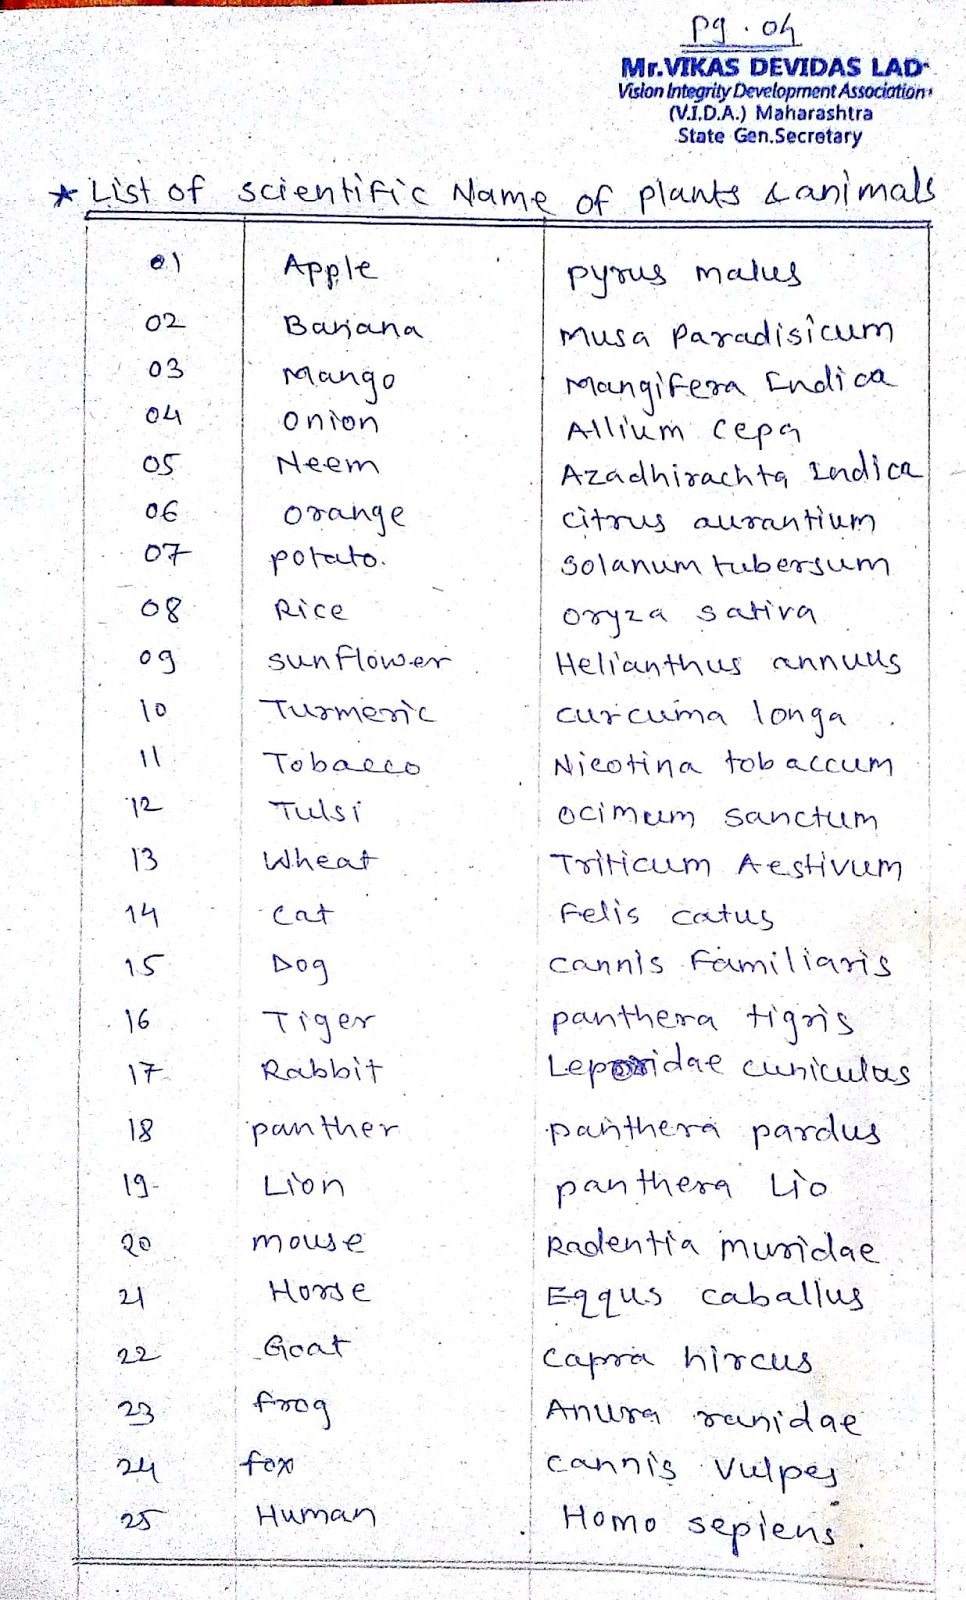 pg. 04
Mr.VIKAS DEVIDAS LAD
Vision Integrity Development Association
(V.I.D.A.) Maharashtra
State Gen.Secretary
* List of scientific Name of plants & animals
01 Apple pyrus malus
02 Banana Musa Paradisicum
03 Mango Mangifera Indica
04 Onion Allium cepa
05 Neem Azadhirachta Indica
06 Orange citrus aurantium
07 potato. Solanum tubersum
08 Rice Oryza sativa
09 sunflower Helianthus annuus
10 Turmeric curcuma longa
11 Tobacco Nicotina tobaccum
12 Tulsi Ocimum sanctum
13 Wheat Triticum Aestivum
14 cat Felis catus
15 Dog cannis Familiaris
16 Tiger panthera tigris
17 Rabbit Leporidae cuniculas
18 panther panthera pardus
19 Lion panthera Lio
20 mouse Radentia muridae
21 Horse Eqqus caballus
22 Goat capra hircus
23 frog Anura ranidae
24 fox cannis vulpes
25 Human Homo sepiens.